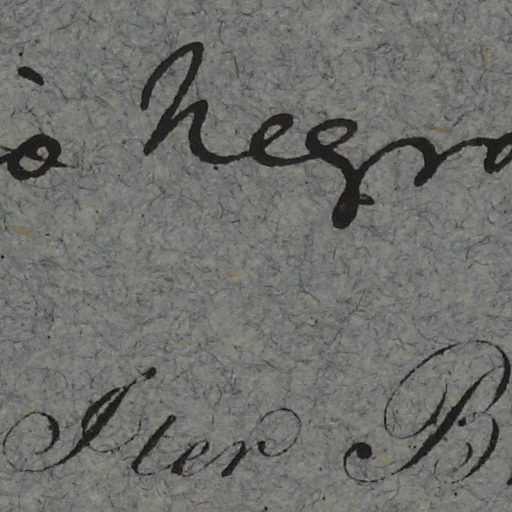 ò Negro
Iter B